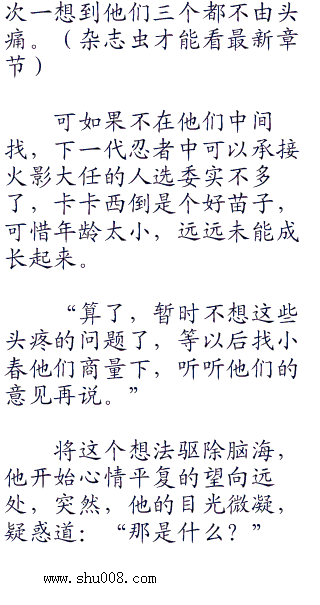 次一想到他们三个都不由头
痛。（杂志虫才能看最新章
节）
可如果不在他们中间
找，下一代忍者中可以承接
火影大任的人选委实不多
了，卡卡西倒是个好苗子，
可惜年龄太小，远远未能成
长起来。
“算了，暂时不想这些
头疼的问题了，等以后找小
春他们商量下，听听他们的
意见再说。”
将这个想法驱除脑海，
他开始心情平复的望向远
处，突然，他的目光微凝，
疑惑道：“那是什么？”
www.shu008.com